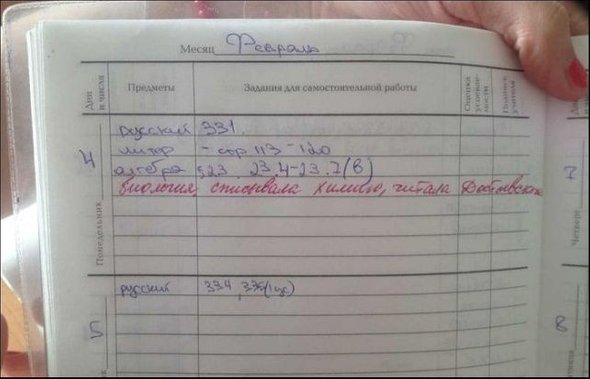 Месяц Февраль
Дни и числа
Предметы
Задания для самостоятельной работы
Оценка успеваемости
Подпись учителя
Понедельник
4
русский 331.
литер - стр 113-120
алгебра §23. 23.4-23.7(в)
Биология, списывала химию, читала Достоевского
5
русский 334, 335(1
7
Четверг
8